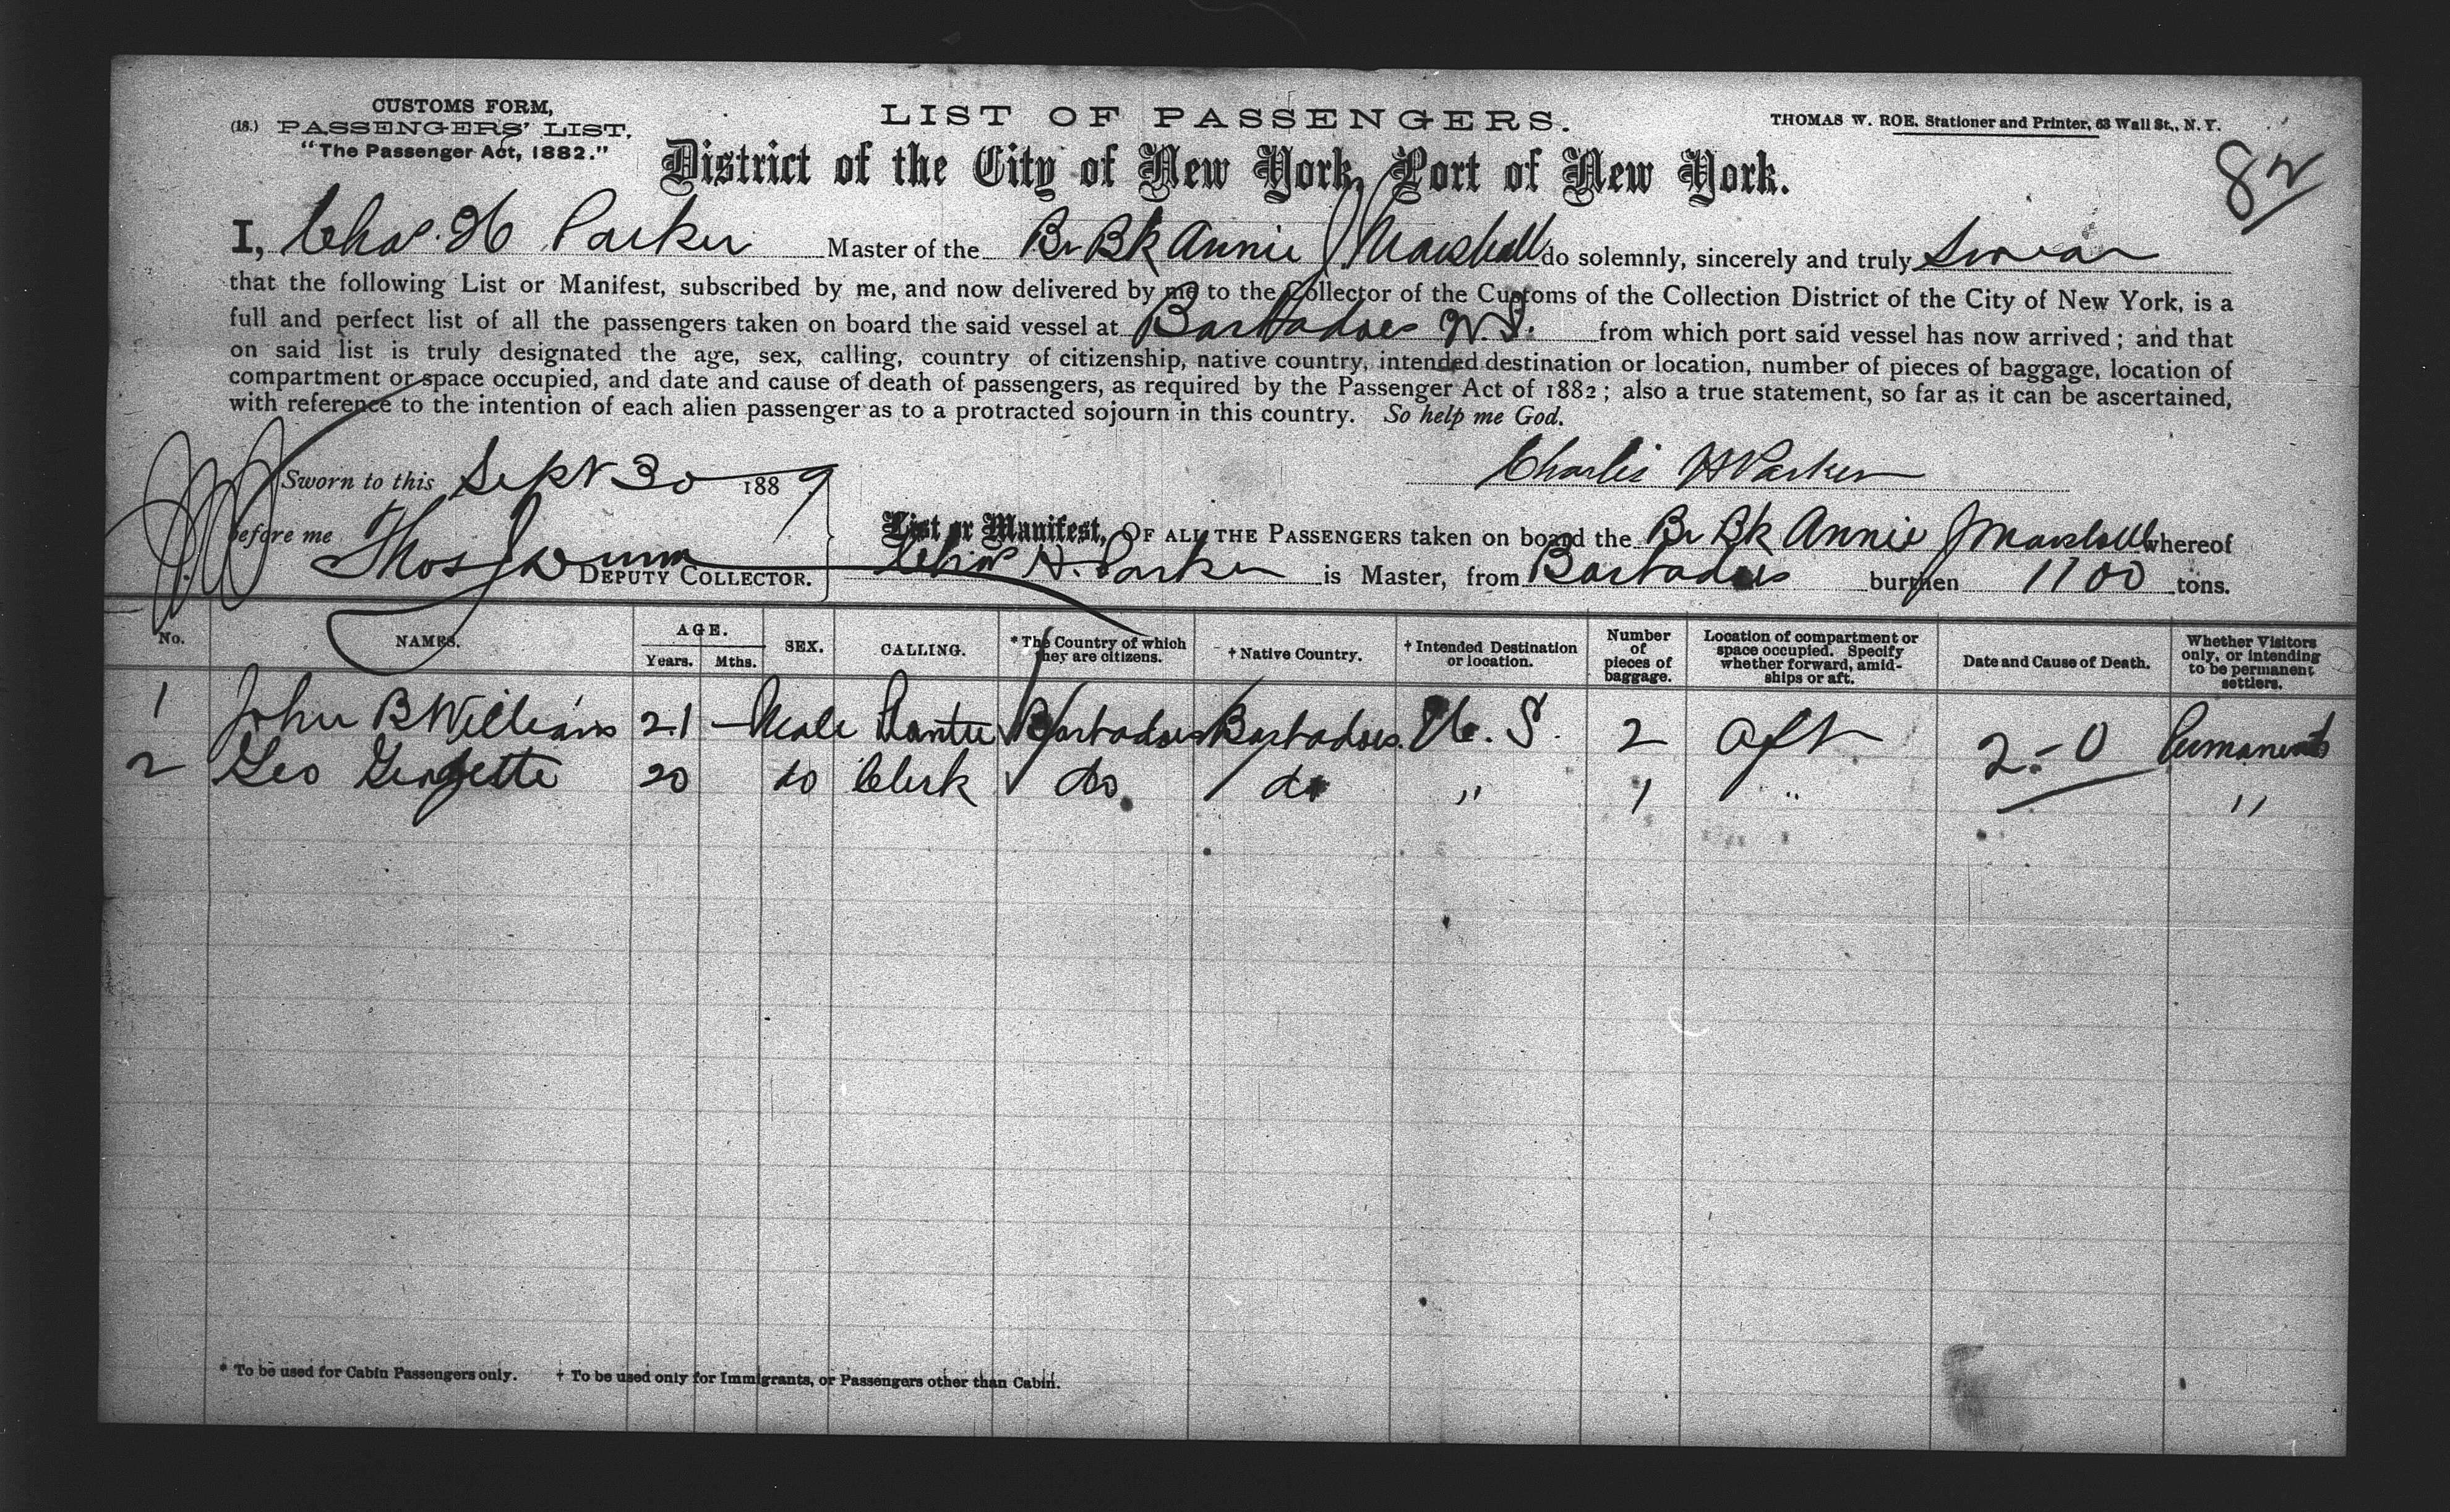 CUSTOMS FORM,
(18.) PASSENGERS' LIST.
"The Passenger Act, 1882."
LIST OF PASSENGERS.
THOMAS W. ROE, Stationer and Printer, 63 Wall St., N. Y.
82
District of the City of New York, Port of New York.
I, Chas. H Parker Master of the Br Bk Annie J Marshall do solemnly, sincerely and truly Swear
that the following List or Manifest, subscribed by me, and now delivered by me to the Collector of the Customs of the Collection District of the City of New York, is a
full and perfect list of all the passengers taken on board the said vessel at Barbadoes from which port said vessel has now arrived; and that
on said list is truly designated the age, sex, calling, country of citizenship, native country, intended destination or location, number of pieces of baggage, location of
compartment or space occupied, and date and cause of death of passengers, as required by the Passenger Act of 1882; also a true statement, so far as it can be ascertained,
with reference to the intention of each alien passenger as to a protracted sojourn in this country. So help me God.
Sworn to this Sept 30 1889
Charlis H Parker
before me Thos
DEPUTY COLLECTOR.
List or Manifest, OF ALL THE PASSENGERS taken on board the Br Bk Annie J Marshall whereof
Chas H. Parker is Master, from Barbadoes burthen 1100 tons.
No. NAMES. AGE. Years. Mths. SEX. CALLING. * The Country of which they are citizens. † Native Country. † Intended Destination or location. Number of pieces of baggage. Location of compartment or space occupied. Specify whether forward, amidships or aft. Date and Cause of Death. Whether Visitors only, or intending to be permanent settlers.
1 John B Williams 21 — Male Planter Barbadoes Barbadoes U. S. 2 Aft 2-0 Permanent
2 Geo 20 do Clerk do do " 1 " "
* To be used for Cabin Passengers only. † To be used only for Immigrants, or Passengers other than Cabin.